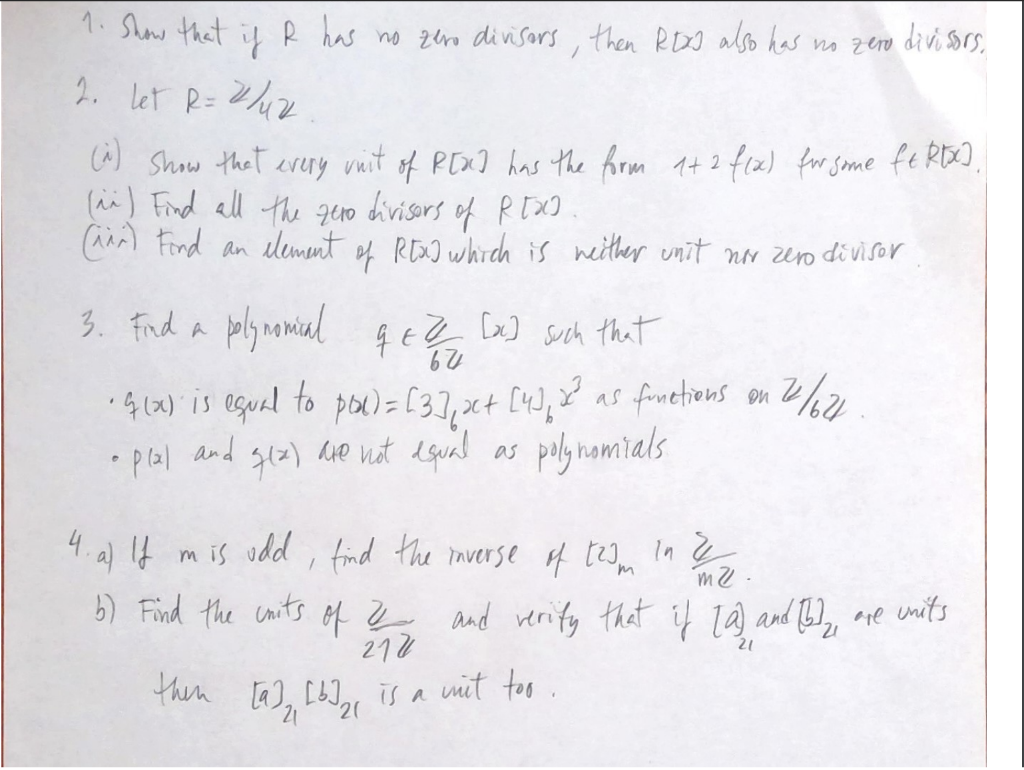 1. Show that if R has no zero divisors, then R[x] also has no zero divisors.
2. Let R = ℤ/4ℤ
(i) Show that every unit of R[x] has the form 1+2 f(x) for some f ∈ R[x].
(ii) Find all the zero divisors of R[x].
(iii) Find an element of R[x] which is neither unit nor zero divisor
3. Find a polynomial q ∈ ℤ/6ℤ [x] such that
• q(x) is equal to p(x) = [3]₆x + [4]₆x³ as functions on ℤ/6ℤ.
• p(x) and q(x) are not equal as polynomials
4. a) If m is odd, find the inverse of [2]ₘ in ℤ/mℤ.
b) Find the units of ℤ/21ℤ and verify that if [a]₂₁ and [b]₂₁ are units
then [a]₂₁ [b]₂₁ is a unit too.